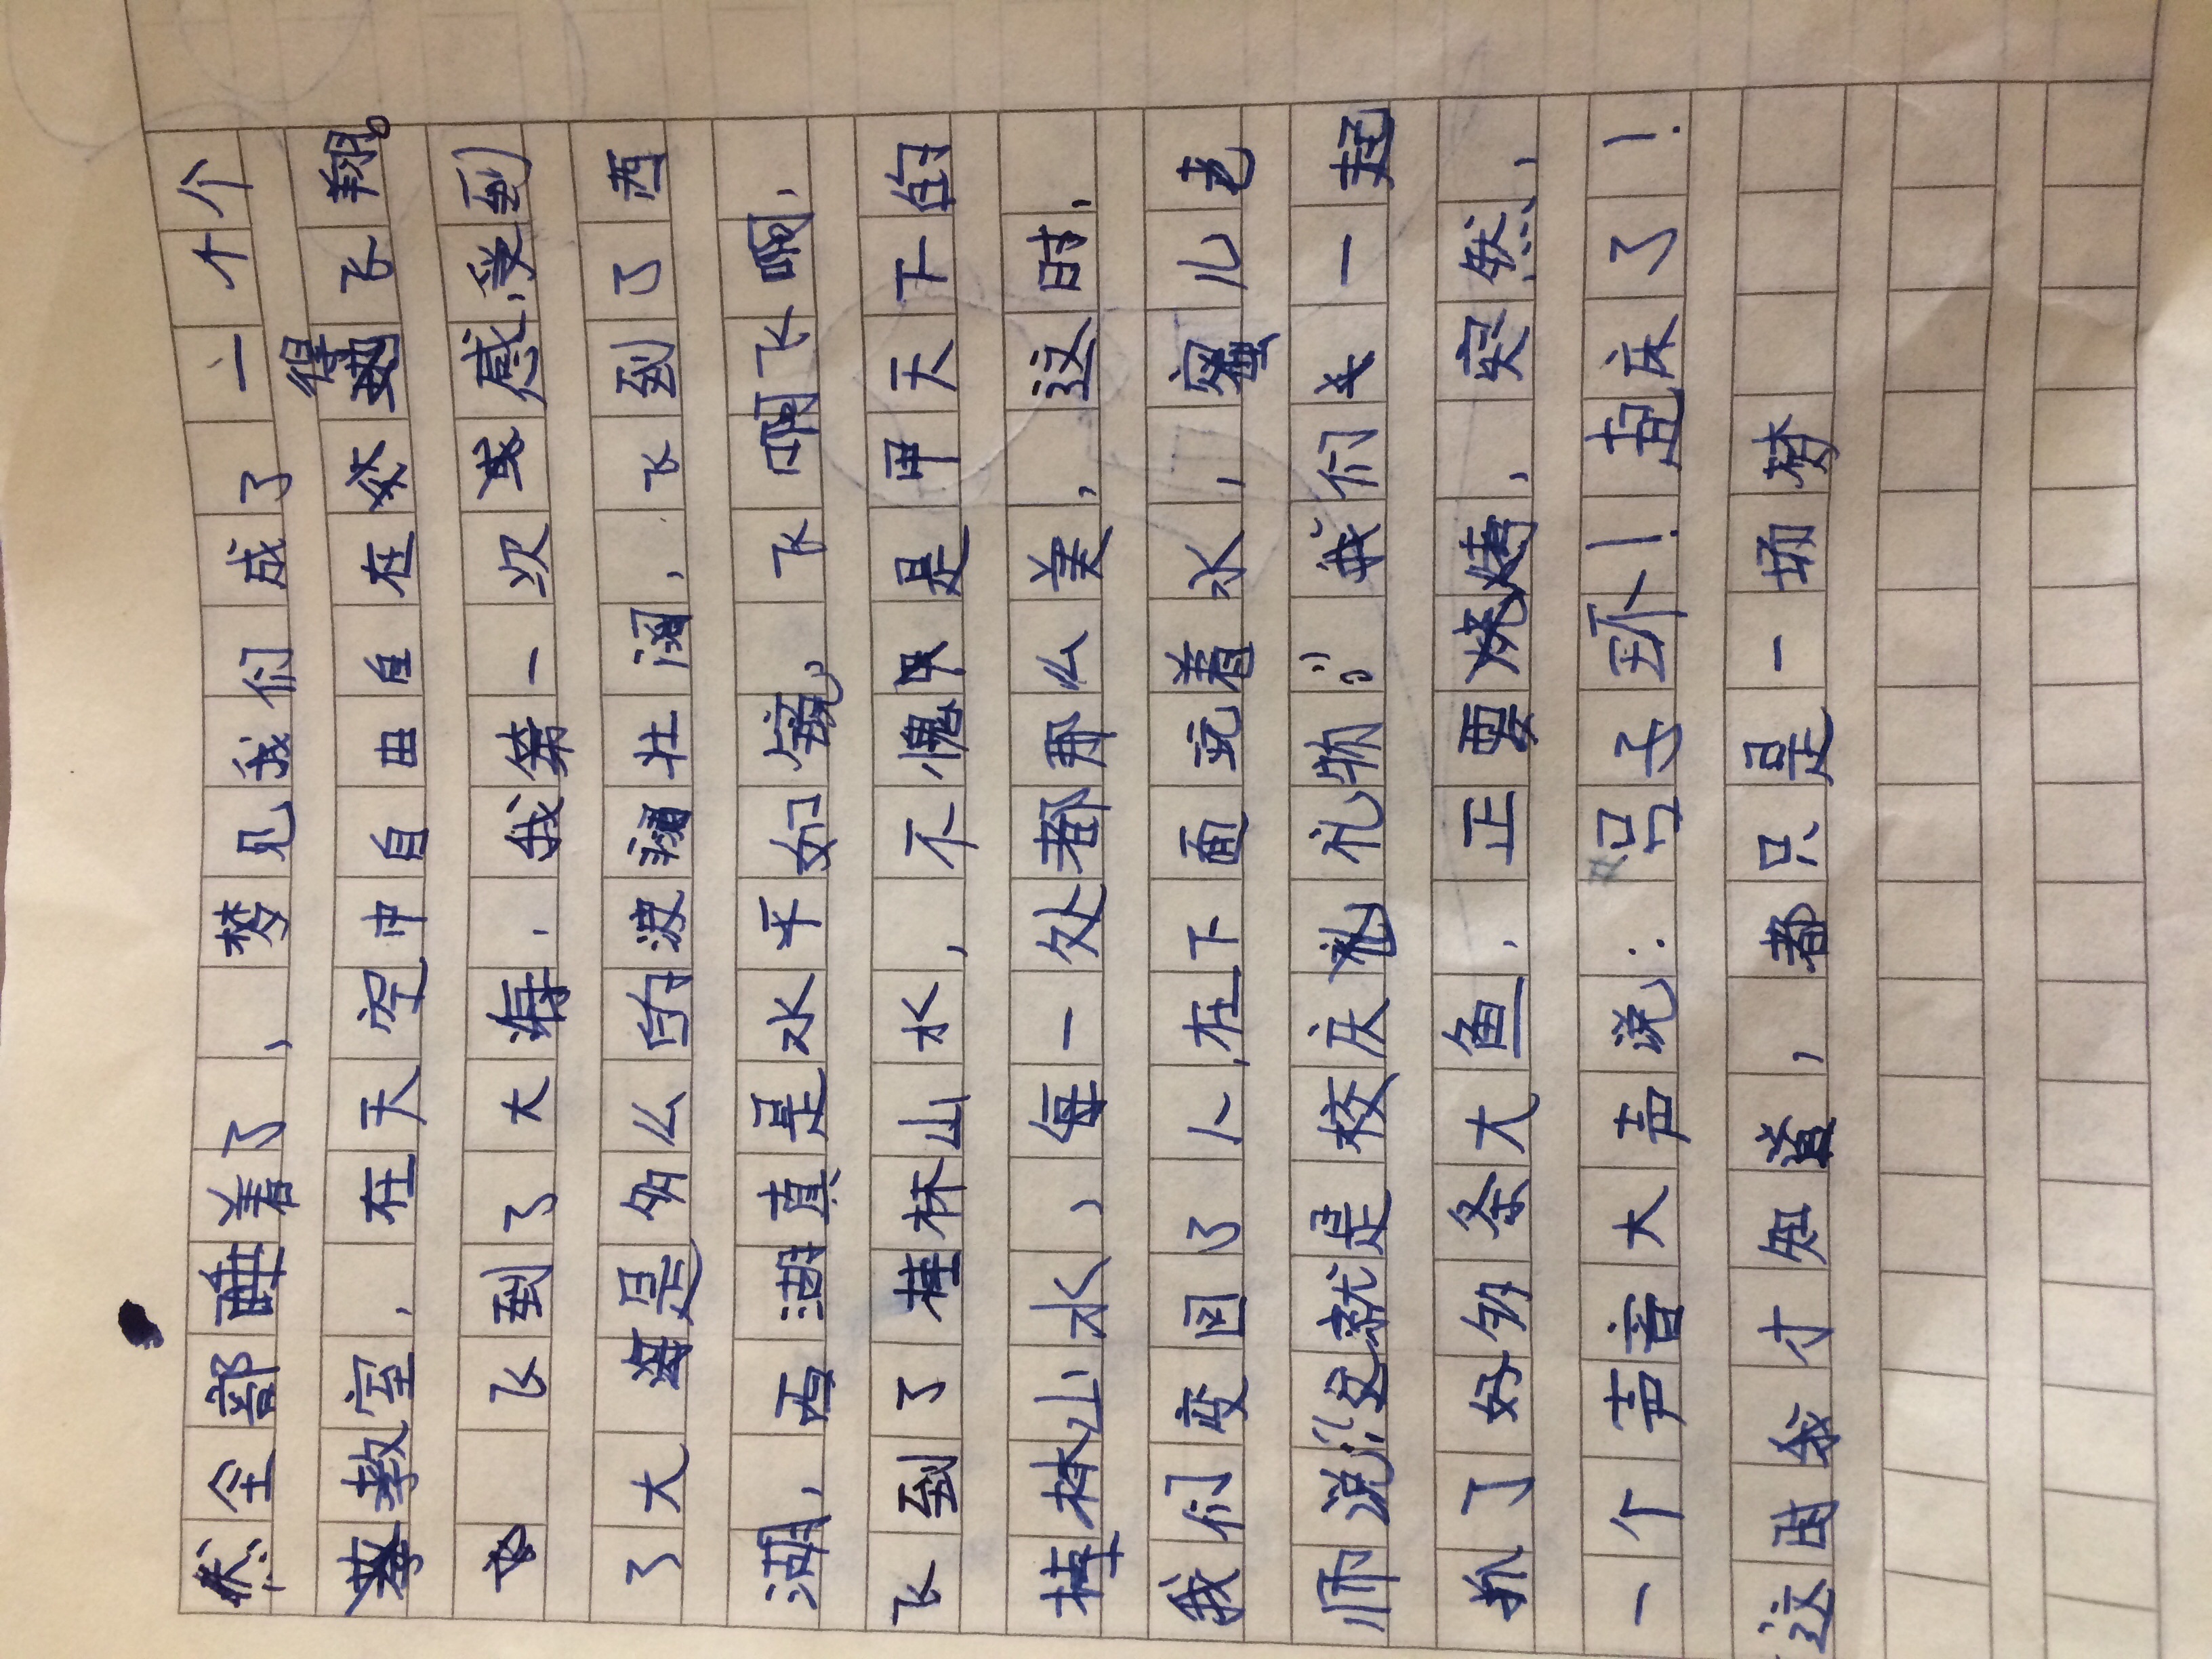 然全部睡着了，梦见我们成了一个个
教室，在天空中自由自在得飞翔。
飞到了大海，我第一次感受到
了大海是多么的波澜壮阔，飞到了西
湖，西湖真是水平如镜。飞飞啊飞啊，
飞到了桂林山水，不愧是甲天下的
桂林山水，每一处都那么美，这时，
我们变回了人，在下面玩着水，蜜儿老
师说：“这就是校庆礼物”我们一起
抓了好多条大鱼，正要烧烤，突然，
一个声音大声说：“弓子玡！起床了！
这时我才知道，都只是一场梦